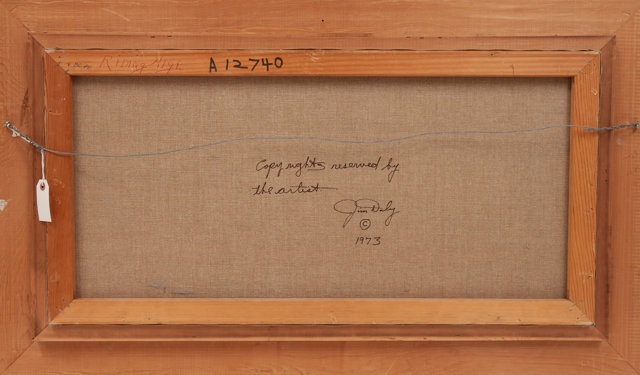 Riding High A12740
Copy rights reserved by
the artist
Jim Daly
©
1973